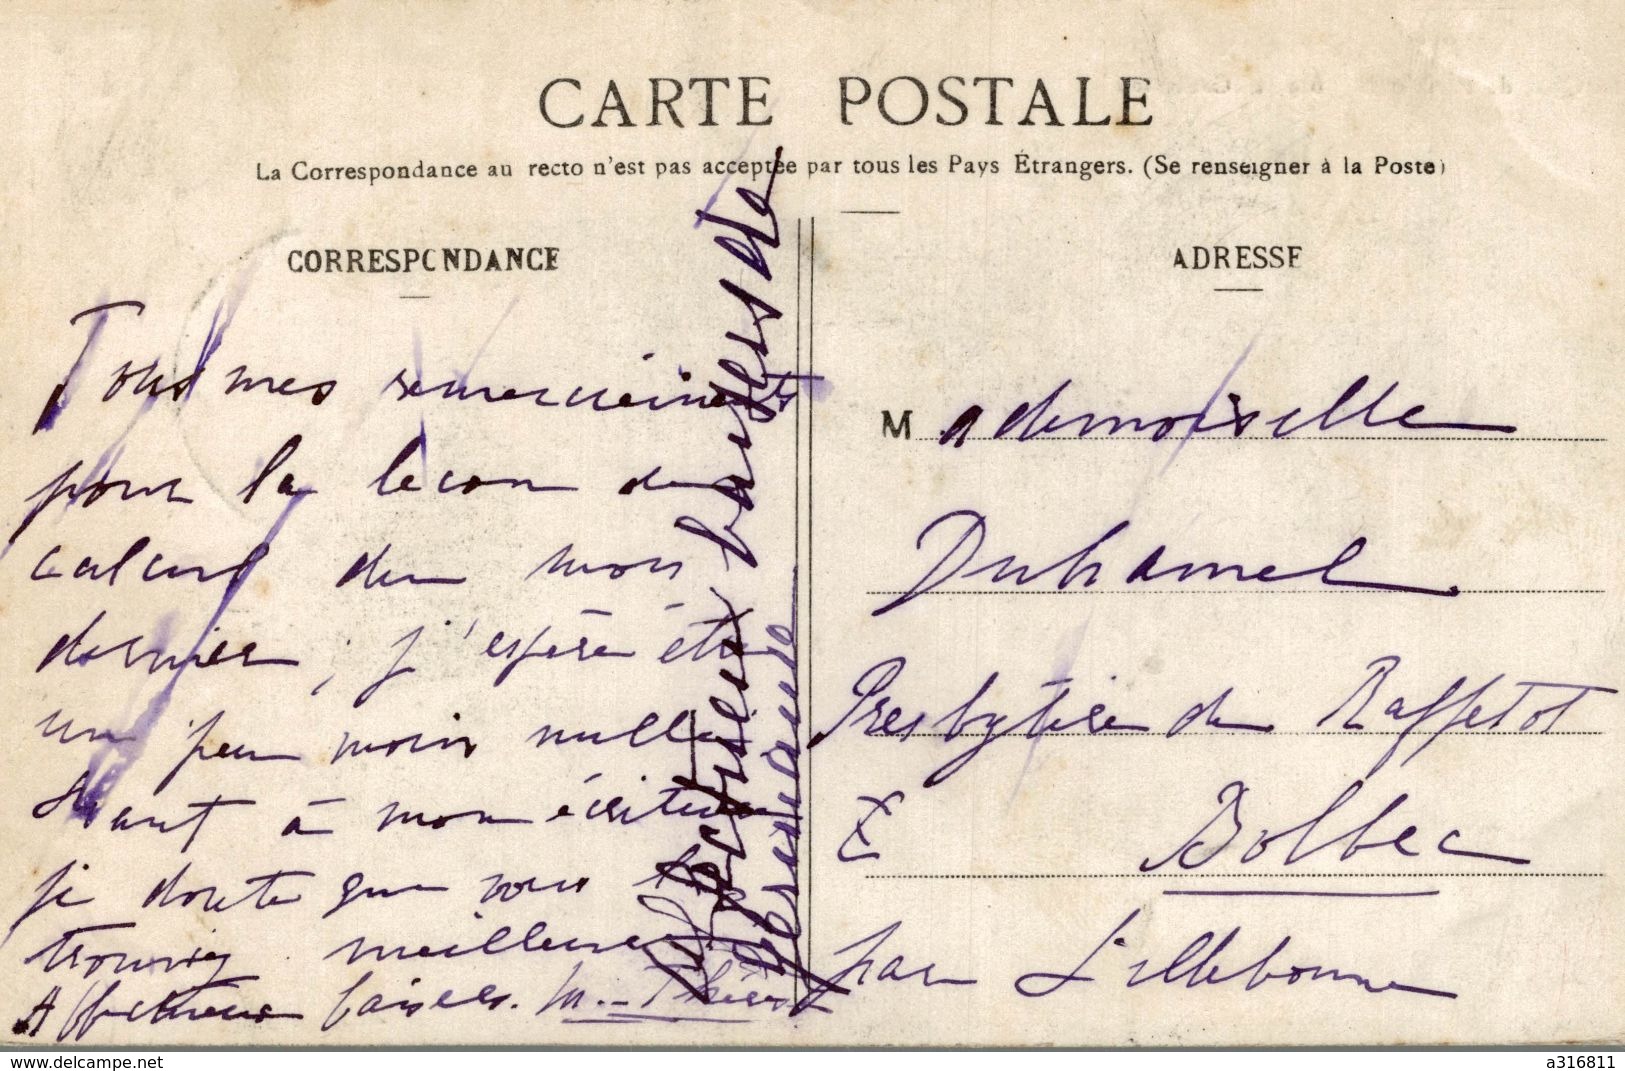 CARTE POSTALE
La Correspondance au recto n'est pas acceptée par tous les Pays Étrangers. (Se renseigner à la Poste)
CORRESPONDANCE
Tous mes remerciements
pour la lecon de
calcul du mois
dernier, j'espère être
un peu moins nulle
quant à mon écriture
je doute que vous la
trouviez meilleure
Affectueux baisers. M.-Thérèse
Affectueux baisers de
Germaine
ADRESSE
Mademoiselle
Duhamel
Presbytère de Raffetot
Bolbec
par Lillebonne
www.delcampe.net
a316811